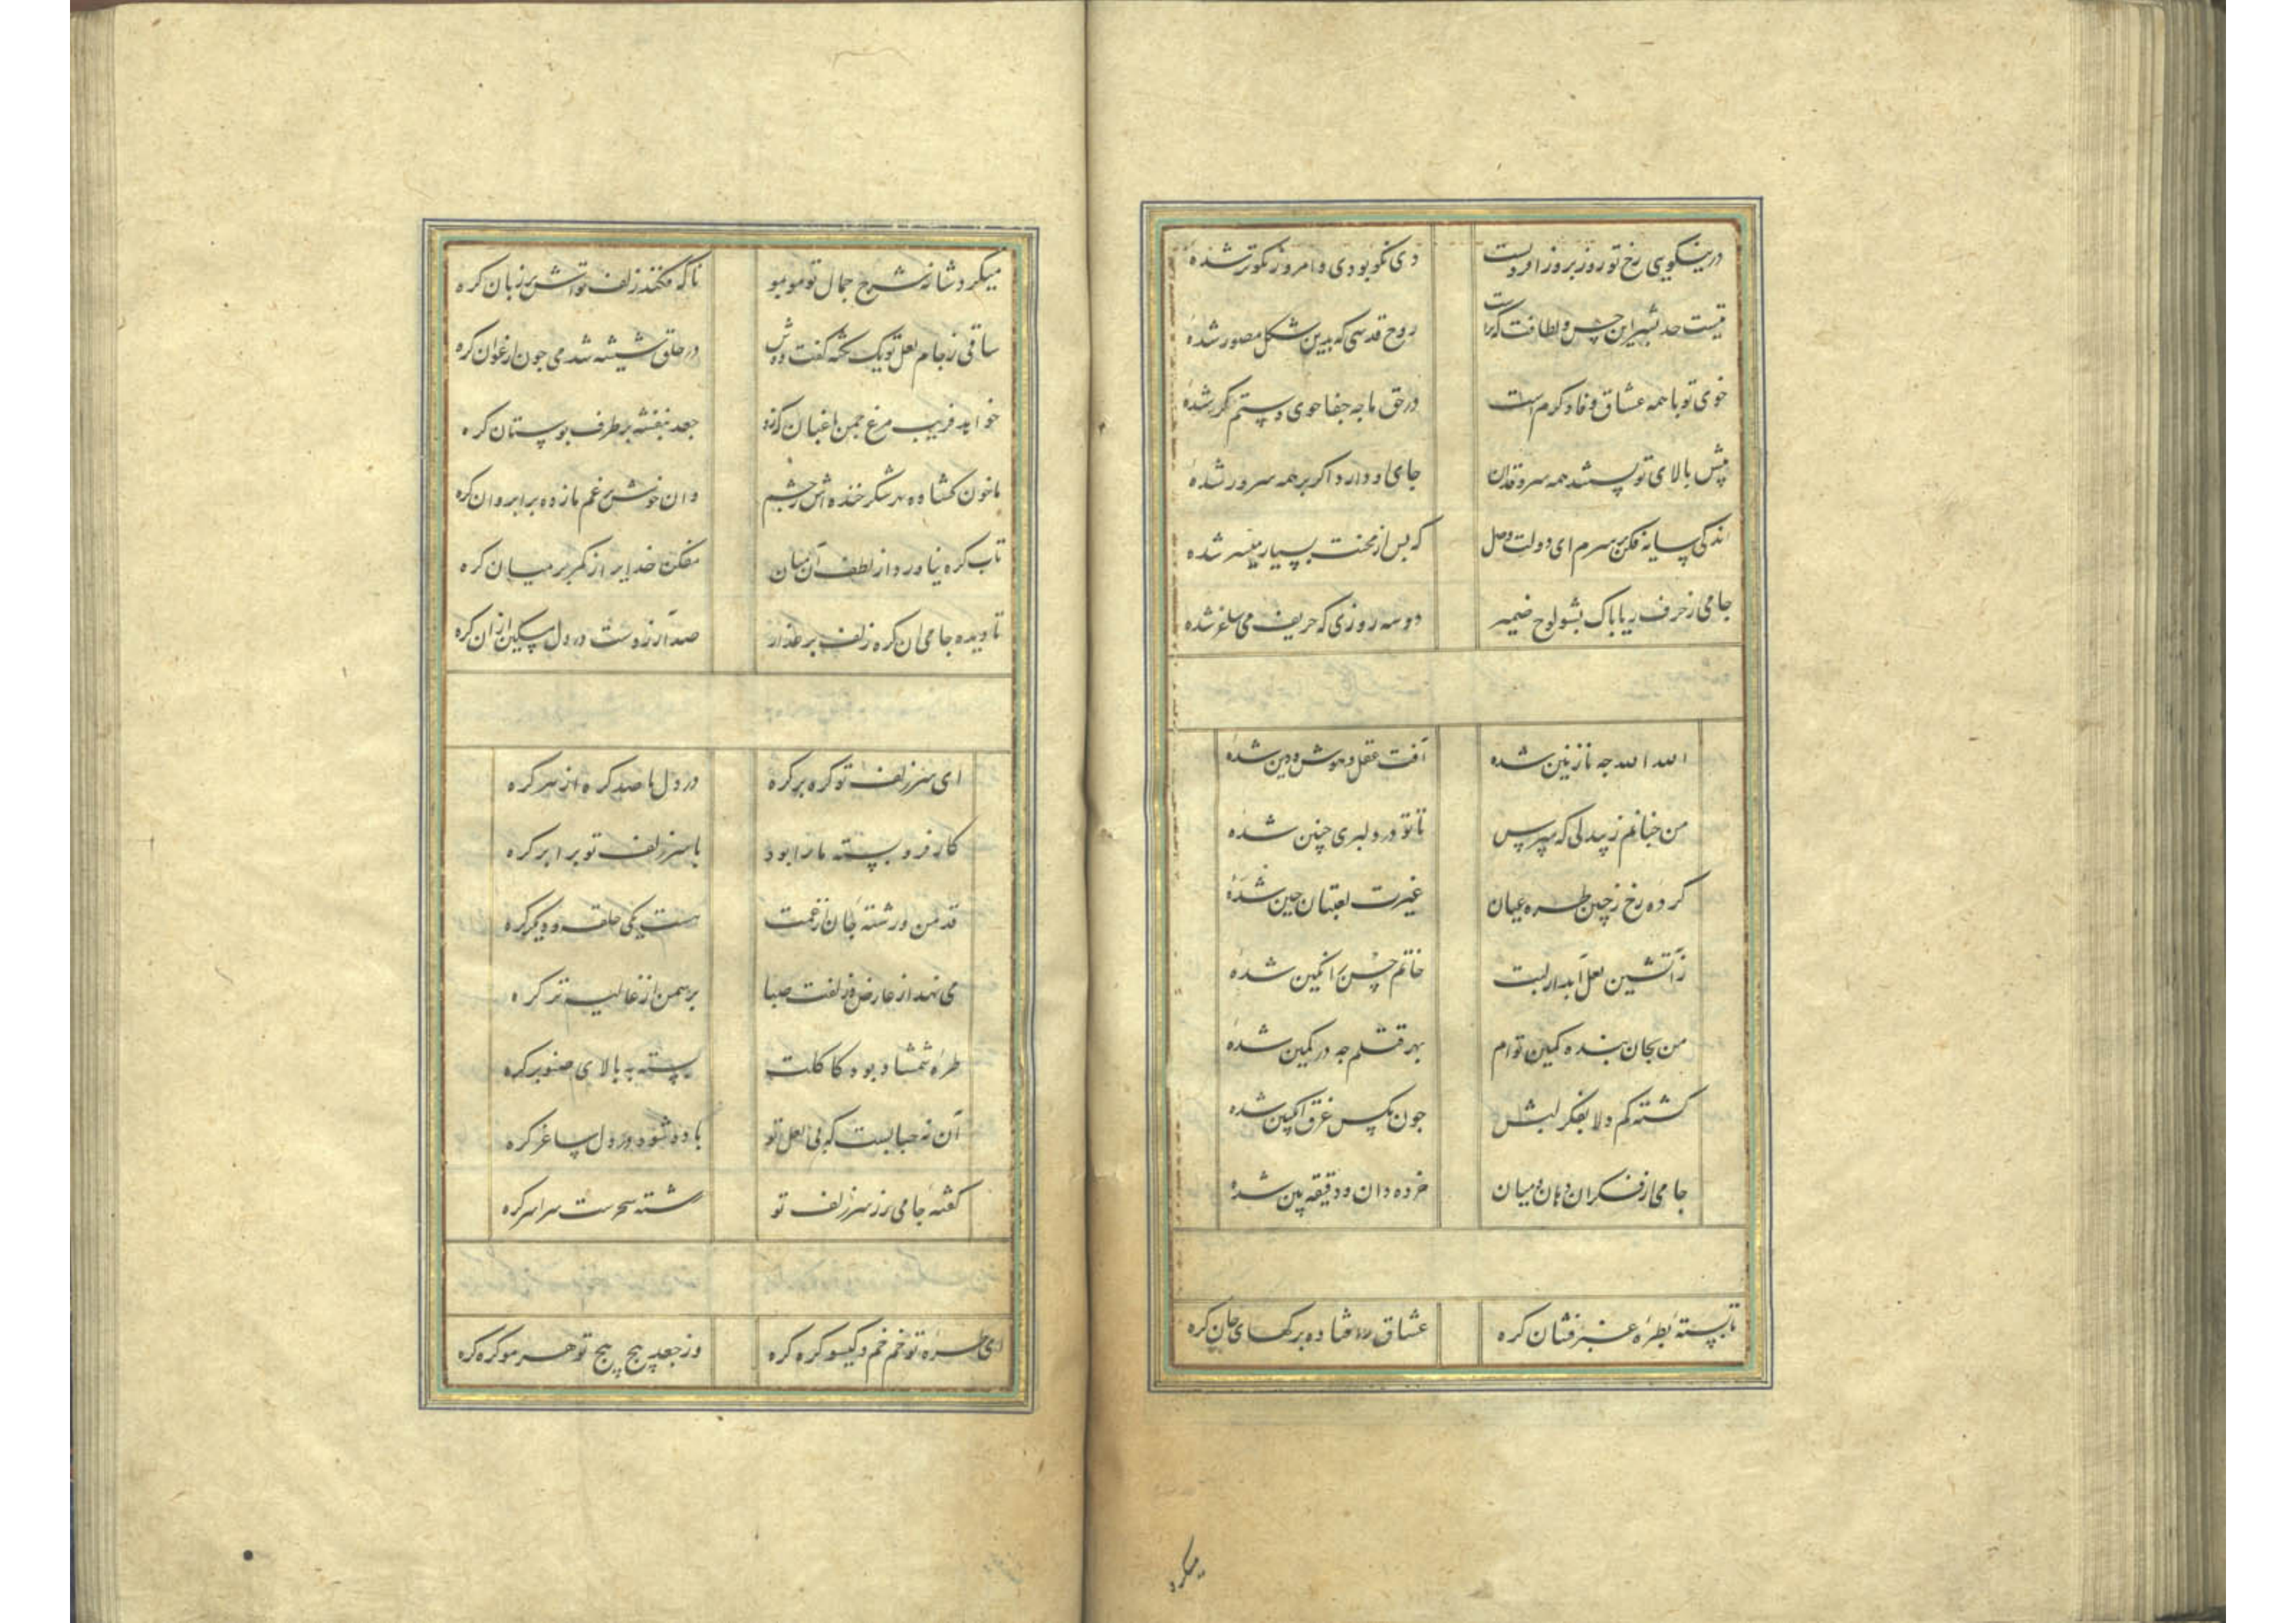 در نیکویی رخ تو روز بروز افزونست دی نکو بودی و امروز نکوتر شده
نیست حد بشر این حسن و لطافت که تراست روح قدسی که بدین شکل مصور شده
خوی تو با همه عشاق وفا و کرم است در حق ما چه جفا جوی و ستمگر شده
پیش بالای تو پستند همه سرو قدان جای او دارد اگر بر همه سرور شده
اندکی سایه فکن بر سرم ای دولت وصل که پس از محنت بسیار میسر شده
جامی از حرف ریا پاک بشو لوح ضمیر دو سه روزی که حریف می و ساغر شده
الله الله چه نازنین شده آفت عقل و هوش و دین شده
من چنانم ز بیدلی که مپرس تا تو در دلبری چنین شده
کرده رخ ز چین طره عیان غیرت لعبتان چین شده
ز آتشین لعل آبدار لبت خاتم حسن را نگین شده
من بجان بنده کمین توام بهر قتلم چه در کمین شده
گشته گم دلا بفکر لبش چون مگس غرق انگبین شده
جامی از فکر آن دهان و میان خرده دان و دقیقه بین شده
تا بسته بطره عنبرفشان گره عشاق را فتاده برگهای جان گره
میکرد
میکرد شانه شرح جمال تو مو بمو ناگه فکند زلف تواش بر زبان گره
ساقی ز جام لعل تو یک نکته گفت دوش در حلق شیشه شد می چون ارغوان گره
خواهد فریب مرغ چمن باغبان که زد جعد بنفشه بر طرف بوستان گره
ما خون گشاده در شکر خنده اش ز چشم وان خوش ز خشم ما زده بر ابروان گره
تاب گره نیاورد از لطف آن میان مفکن خدایرا ز کمر بر میان گره
تا دیده جامی آن گره زلف بر عذار صد آرزوست در دل مسکین از آن گره
ای سر زلف تو گره بر گره در دل ما صد گره از هر گره
کار فرو بسته ما را بود با سر زلف تو برابر گره
قد من و رشته جان از غمت هست یکی حلقه و دیگر گره
می نهد از عارض و زلفت صبا بر سمن از غالیه تر گره
طره شمشاد بود کاکلت بسته به بالای صنوبر گره
آن نه حبابست که بی لعل تو باده شود در دل ساغر گره
گفته جامی ز سر زلف تو رشته سحرست سراسر گره
ای طره تو خم خم و گیسو گره گره وز جعد پیچ پیچ تو هر مو گره گره